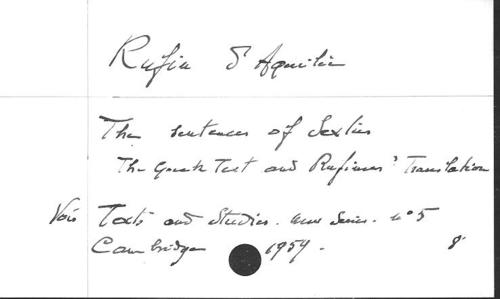 Rufin d'Aquilée
The sentences of Sextus
The Greek Text and Rufinus' Translation
Voir Texts and Studies. New Series. n°5
Cambridge 1959. 8°